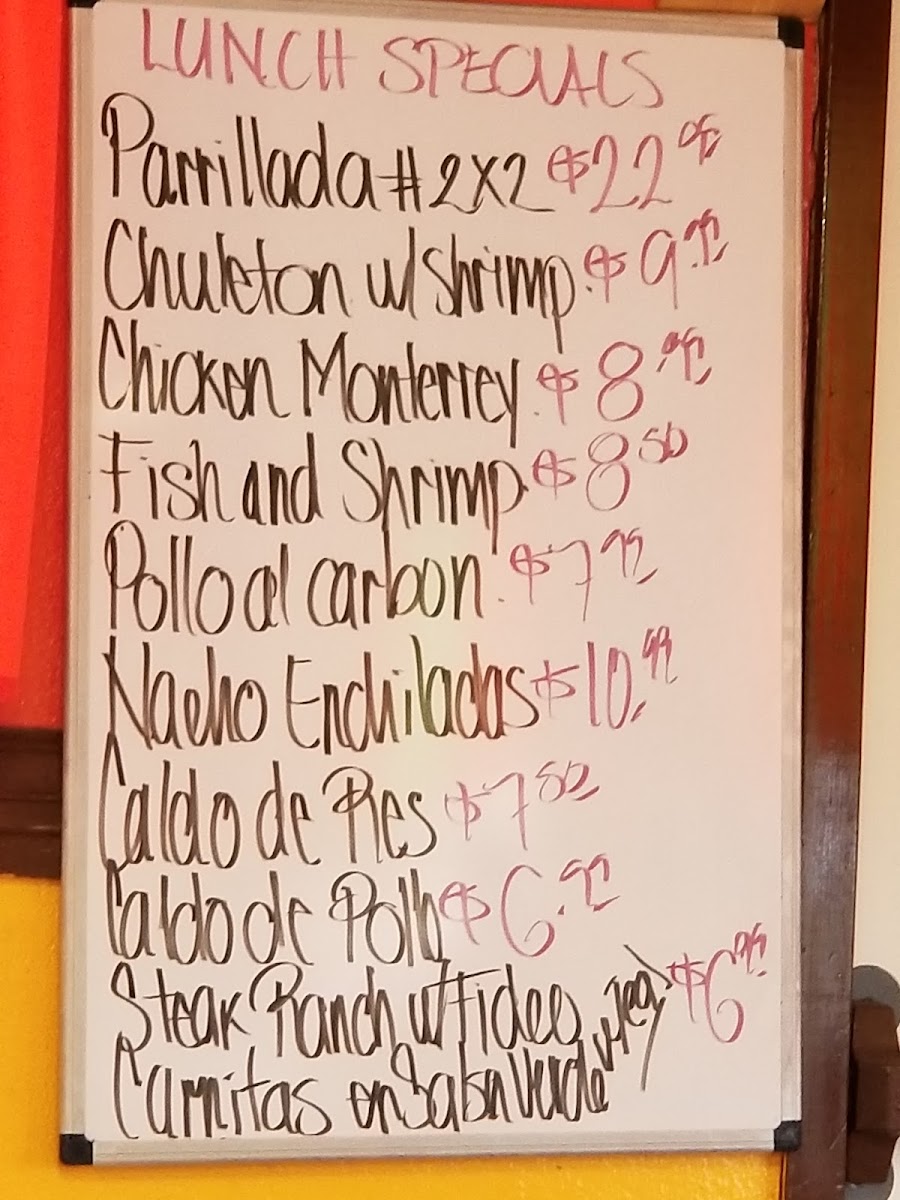 LUNCH SPECIALS
Parrillada #2X2 $22.95
Chuleton w/ shrimp. $9.99
Chicken Monterrey. $8.95
Fish and Shrimp. $8.50
Pollo al carbon. $7.99
Nacho Enchiladas $10.99
Caldo de Res $7.50
Caldo de Pollo $6.99
Steak Ranch w/ Fideo w/ Tea) $6.95
Carnitas en Salsa Verde